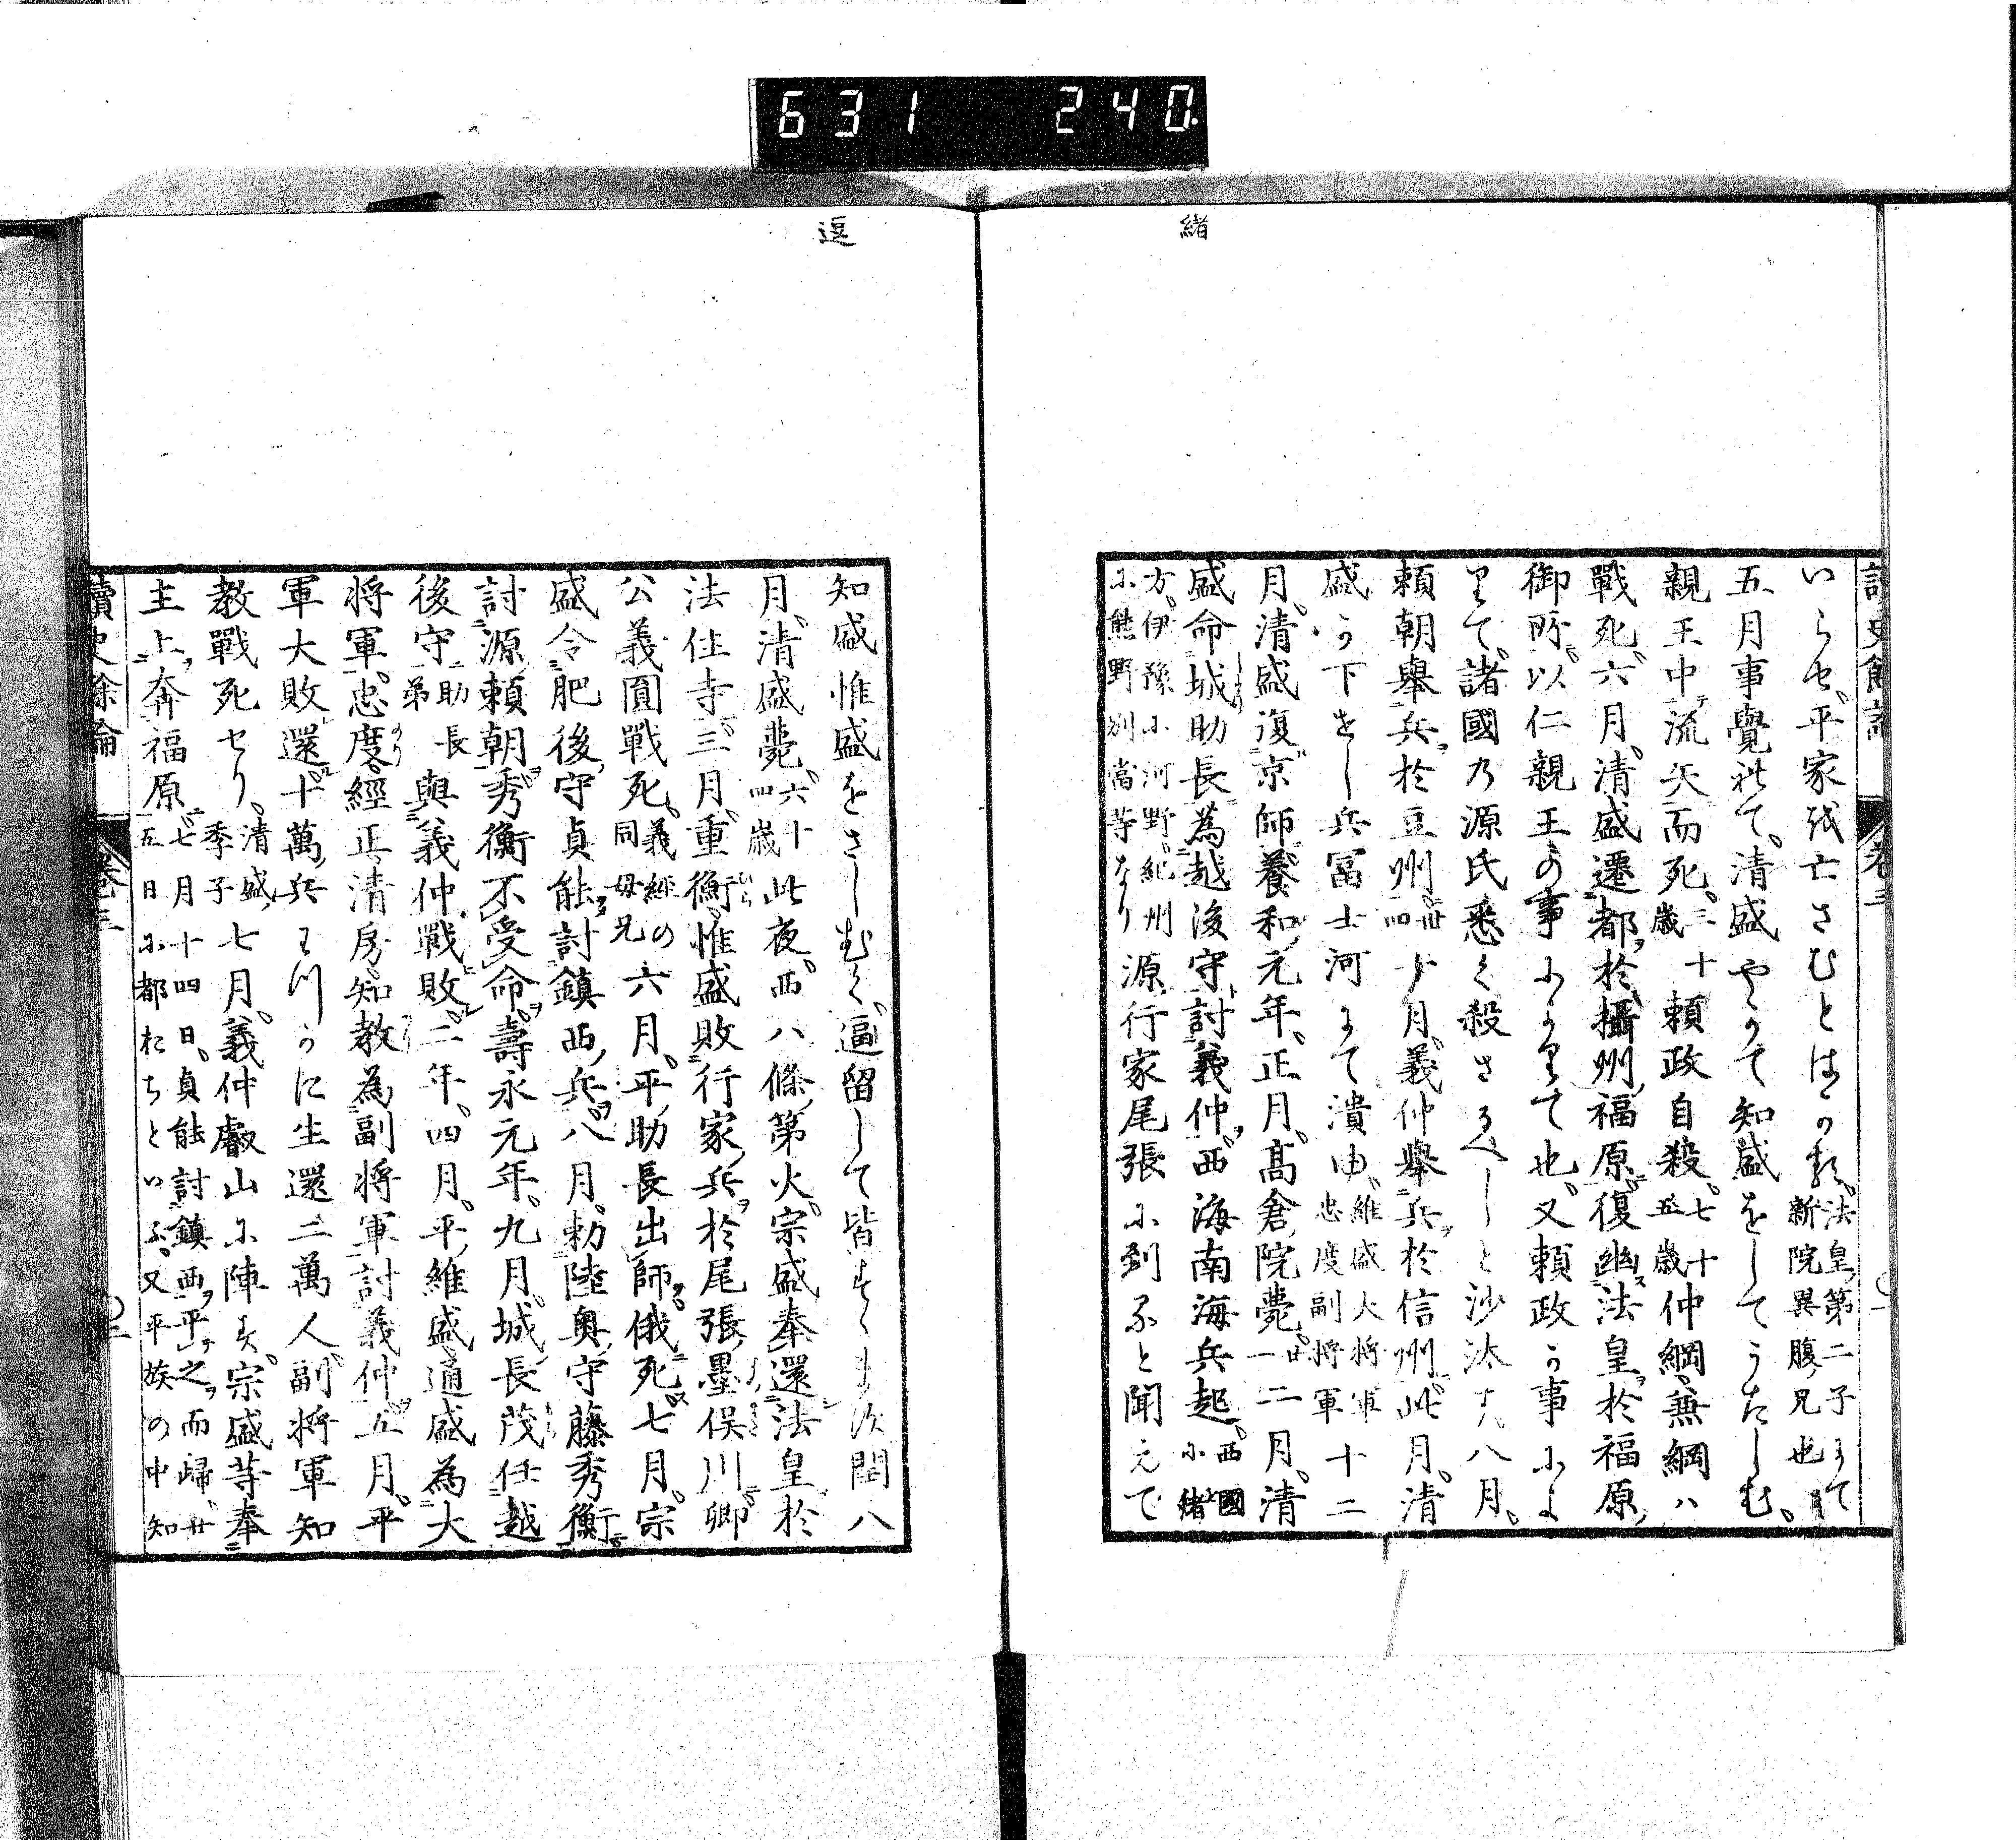 631 240
緒
いらせ、平家を亡さむとはかる、法皇第二子にて新院異腹兄也
五月事覺れて、清盛やかて知盛をしてうたしむ、
親王中流矢而死、三十歳頼政自殺、七十五歳仲綱、兼綱ハ
戰死、六月、清盛遷都於攝州福原、復幽法皇於福原、
御所、以仁親王の事によりて也、又頼政か事によ
りて、諸國乃源氏悉く殺さるへしと沙汰す、八月、
頼朝舉兵於豆州、卅四九月、義仲舉兵於信州、此月、清
盛か下せし兵冨士河にて潰ゆ、維盛大将軍忠度副将軍十二
月、清盛復京師、養和元年、正月、髙倉院薨、廿一二月、清
盛命城助長為越後守、討義仲、西海南海兵起、西國小緒
方、伊豫小河野、紀州小熊野別當等なり源行家尾張小到ると聞えて
讀史餘論 卷三
逗
知盛惟盛をさしむく、逗留して皆すゝます、閏八
月、清盛薨、六十四歳此夜、西八條第火、宗盛奉還法皇於
法住寺、三月、重衡、惟盛敗行家兵於尾張墨俣川、卿
公義圓戰死、義經の同母兄六月、平助長出師、俄死、七月、宗
盛令肥後守貞能討鎮西兵、八月、勅陸奥守藤秀衡
討源頼朝、秀衡不受命、壽永元年、九月、城長茂任越
後守、助長弟與義仲戰敗、二年、四月、平維盛、通盛為大
将軍、忠度、經正、清房、知教為副将軍討義仲、五月、平
軍大敗還、十萬兵わつかに生還二萬人、副将軍知
教戰死せり、清盛季子七月、義仲叡山小陣す、宗盛等奉
主上、奔福原、七月十四日、貞能討鎮西、平之而歸、廿五日小都おちといふ、又平族の中知
讀史餘論 卷三